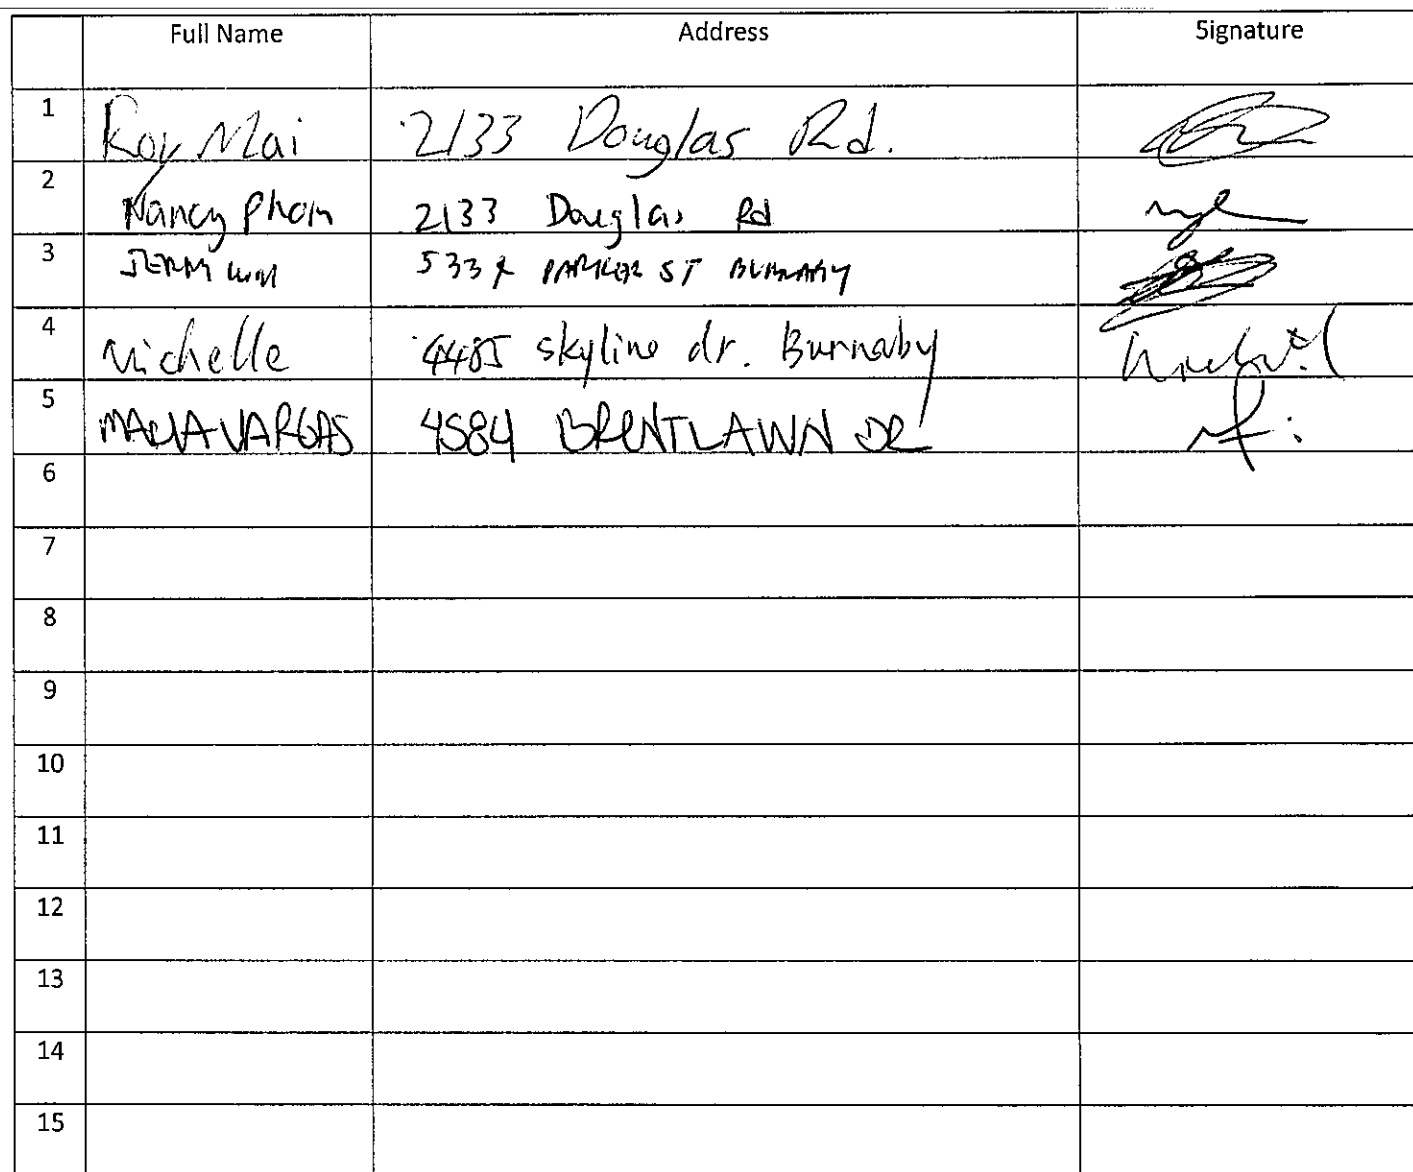 Full Name Address Signature
1 Roy Mai 2133 Douglas Rd.
2 Nancy Pham 2133 Douglas Rd
3 JERRY PARKER ST BURNABY
4 Michelle 4485 skyline dr. Burnaby
5 VARGAS 4584 BRENTLAWN DR
6
7
8
9
10
11
12
13
14
15